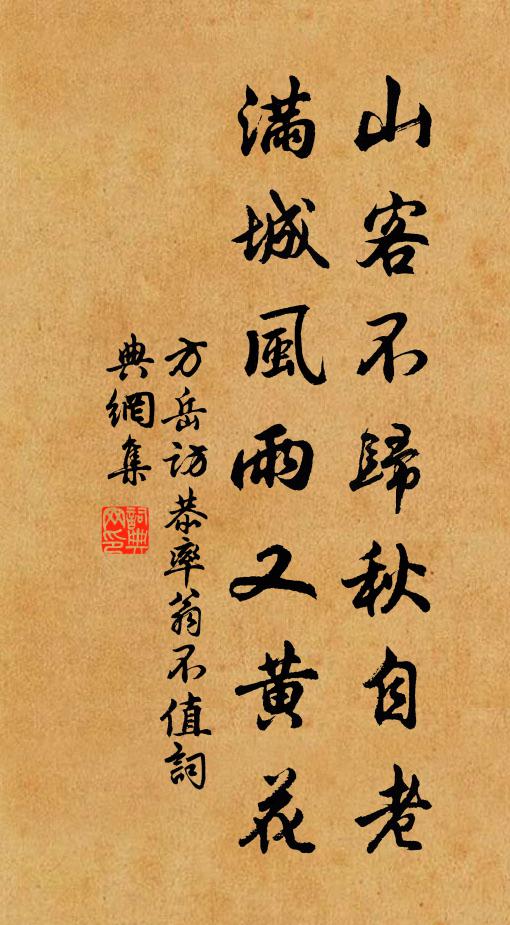 山客不歸秋自老
滿城風雨又黃花
方岳訪恭率翁不值詞
典網集
詞典
网印